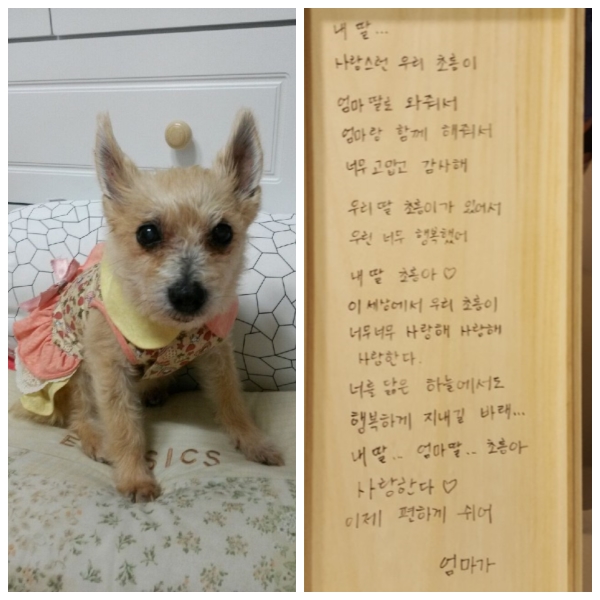 내 딸...
사랑스런 우리 초롱이
엄마 딸로 와줘서
엄마랑 함께 해줘서
너무 고맙고 감사해
우리 딸 초롱이가 있어서
우린 너무 행복했어
내 딸 초롱아 ♡
이 세상에서 우리 초롱이
너무너무 사랑해 사랑해
사랑한다.
너를 닮은 하늘에서도
행복하게 지내길 바래...
내 딸.. 엄마딸.. 초롱아
사랑한다 ♡
이제 편하게 쉬어
엄마가